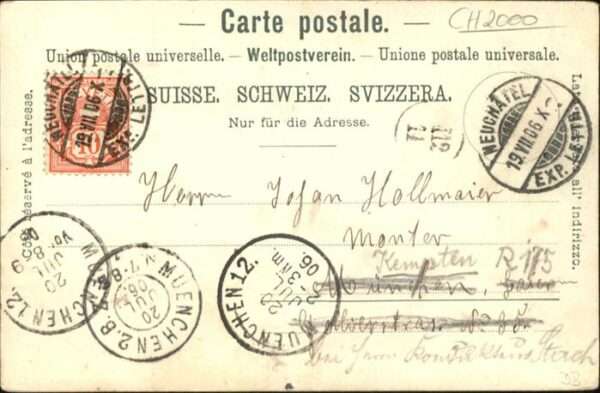 Carte postale.
CH2000
Union postale universelle. — Weltpostverein. — Unione postale universale.
SUISSE. SCHWEIZ. SVIZZERA.
Nur für die Adresse.
Côté réservé à l'adresse.
all' indirizzo.
10
NEUCHÂTEL
19.VII.06.X
EXP. LET.
NEUCHÂTEL
19.VII.06.X
EXP. LETT.
Herrn Johan Hollmaier
Monter
Kempten R 175
München,
bei Herrn
MUENCHEN 12.
20
JUL
06.
2-3 Nm.
MUENCHEN 2. B.Z
20
JUL
06
N 7-8
MUENCHEN 12. 9
20
JUL
06
Vor. 8